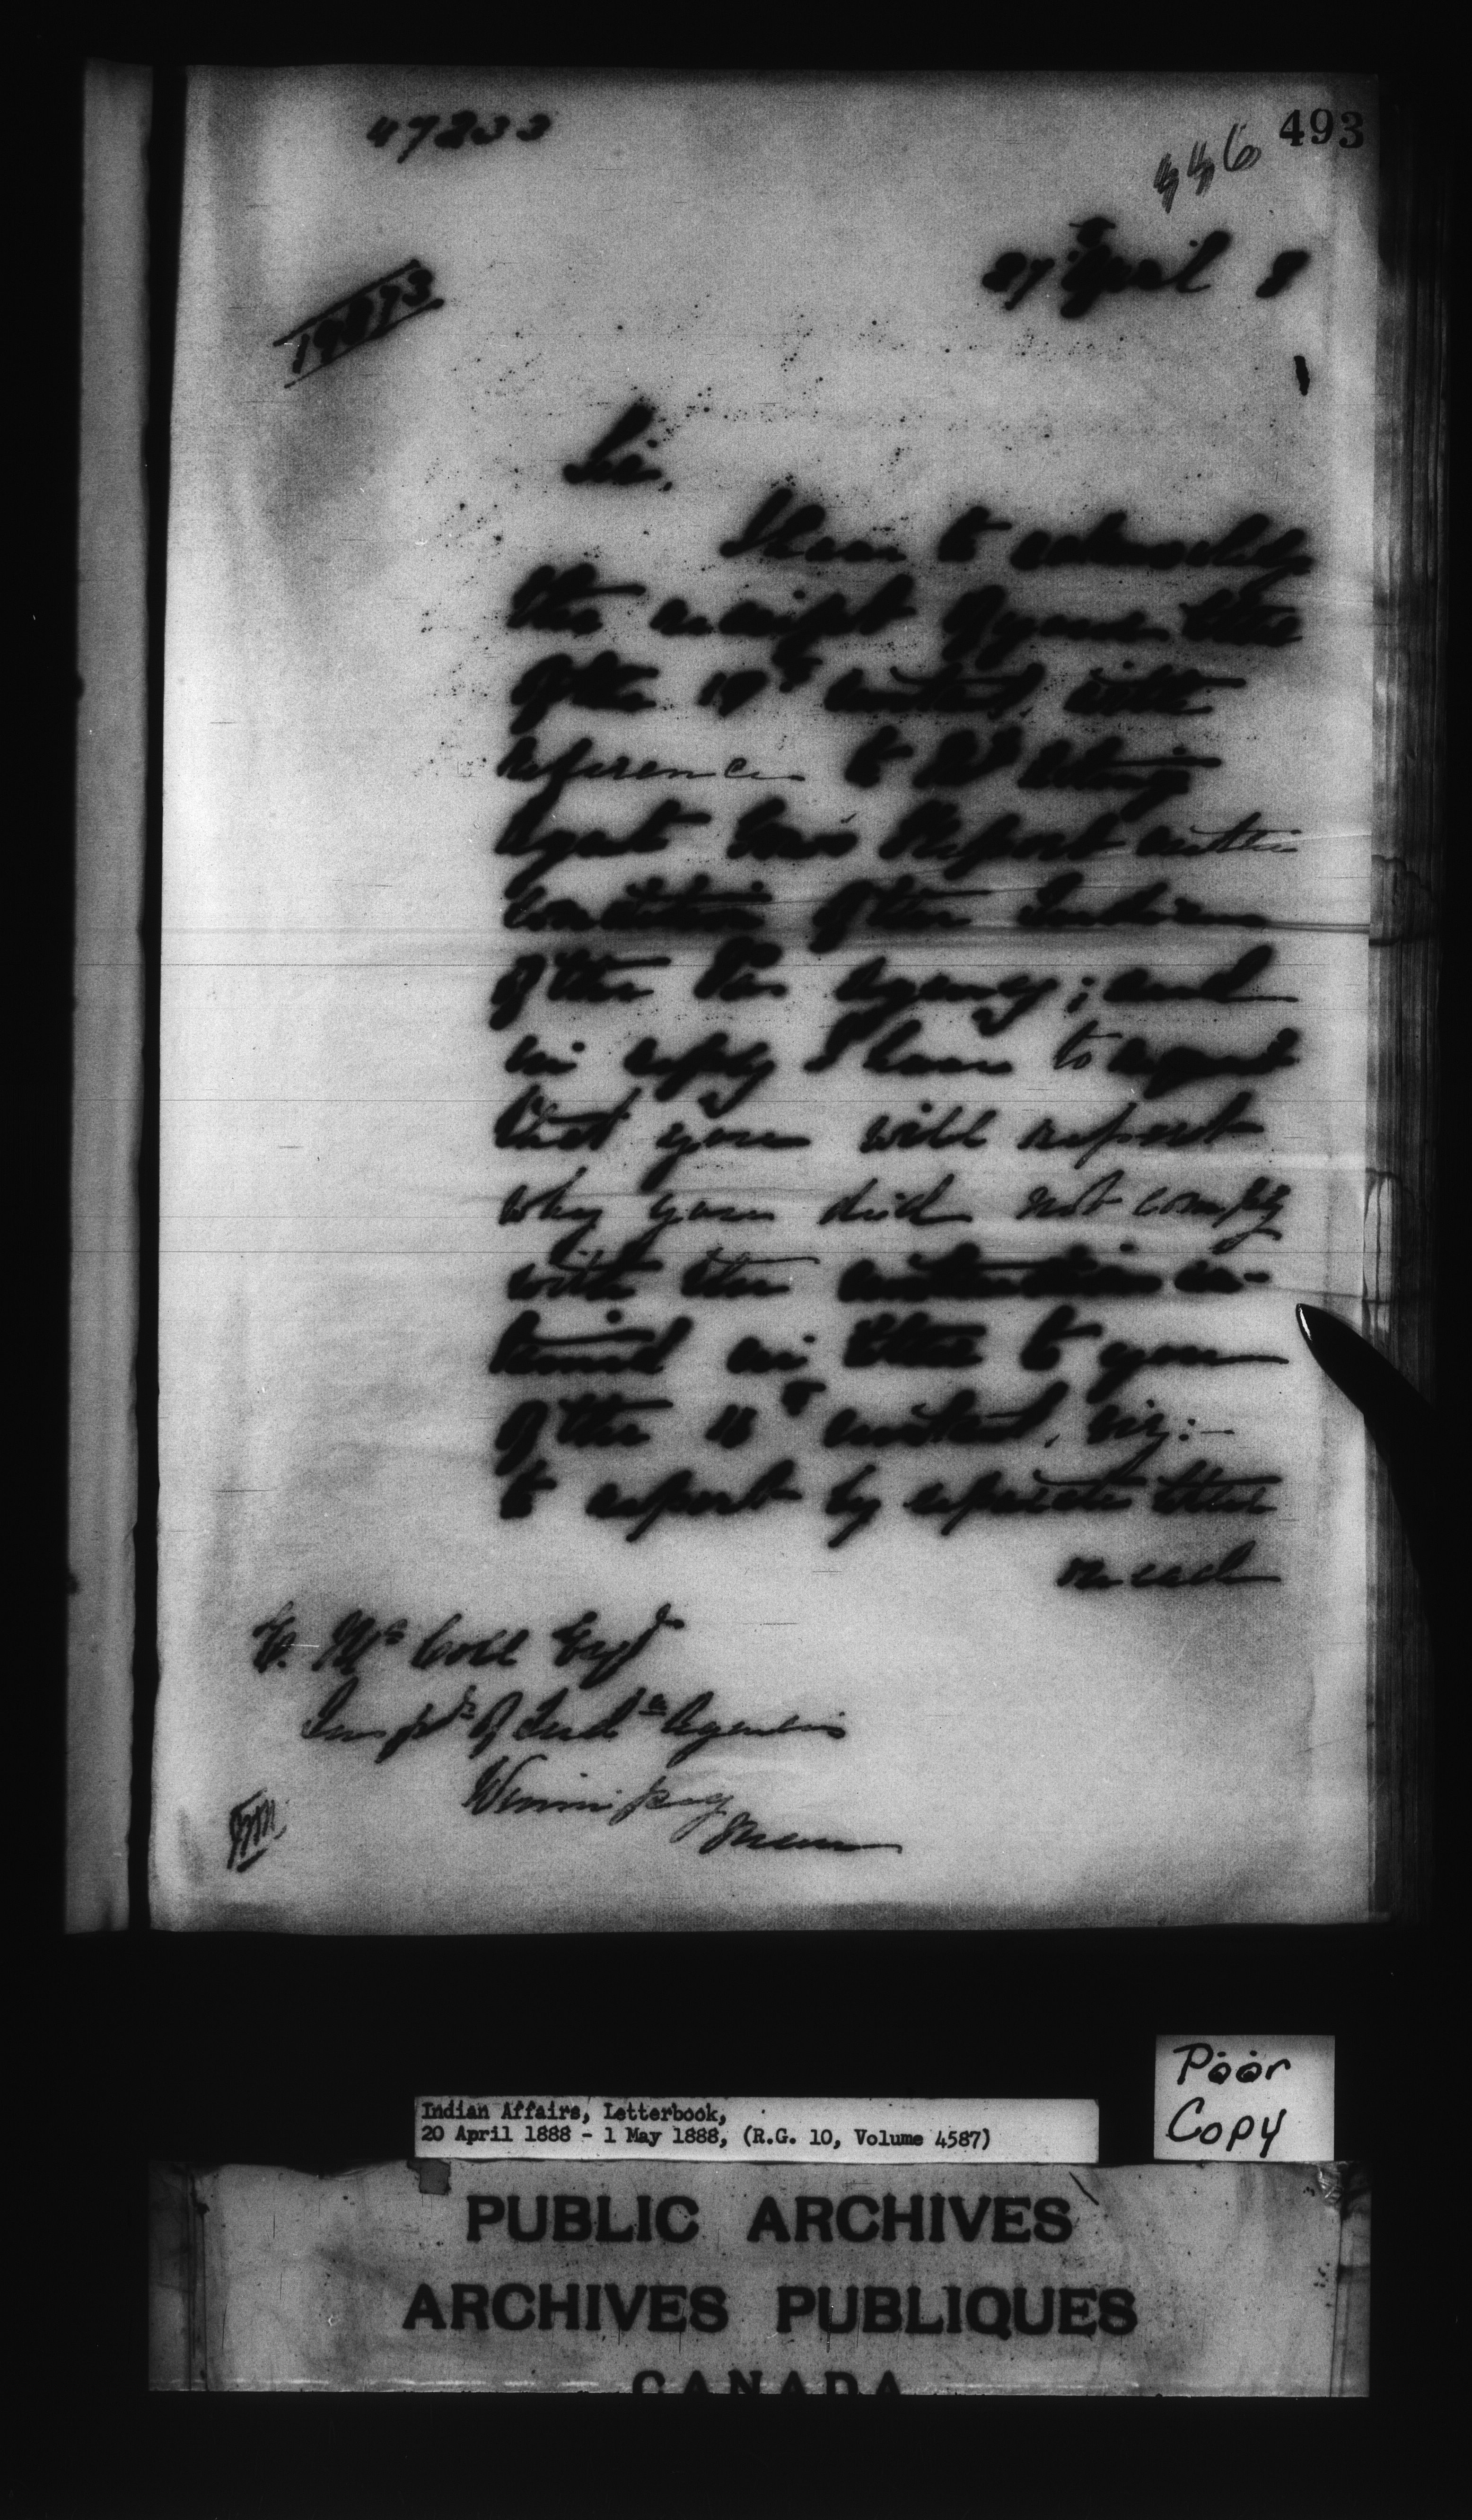 493
446
47233
27th April 8
Sir,
I have to acknowledge
the receipt of your letter
of the 19th instant, with
reference to
Agent Report on the
condition of the Indians
of the Pas Agency; and
in reply I have to request
that you will report
why you did not comply
with the instructions con-
tained in letter to you
of the instant, viz:-
to report by separate letter
on each
E. McColl Esqr
Inspr of Indn Agencies
Winnipeg
Man
Poor
Copy
Indian Affairs, Letterbook,
20 April 1888 - 1 May 1888, (R.G. 10, Volume 4587)
PUBLIC ARCHIVES
ARCHIVES PUBLIQUES
CANADA